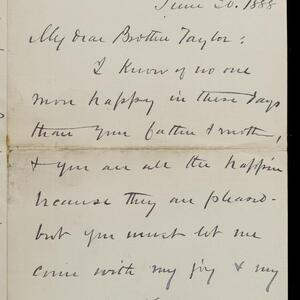 June 20. 1888
My dear Brother Taylor:
I know of no one
more happy in these days
than your father & mother,
& you are all the happier
because they are pleased -
but you must let me
come with my joy & my